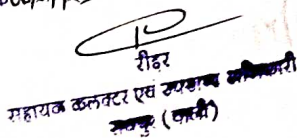 रीडर
सहायक कलक्टर एवं उपखण्ड अधिकारी
(पाली)